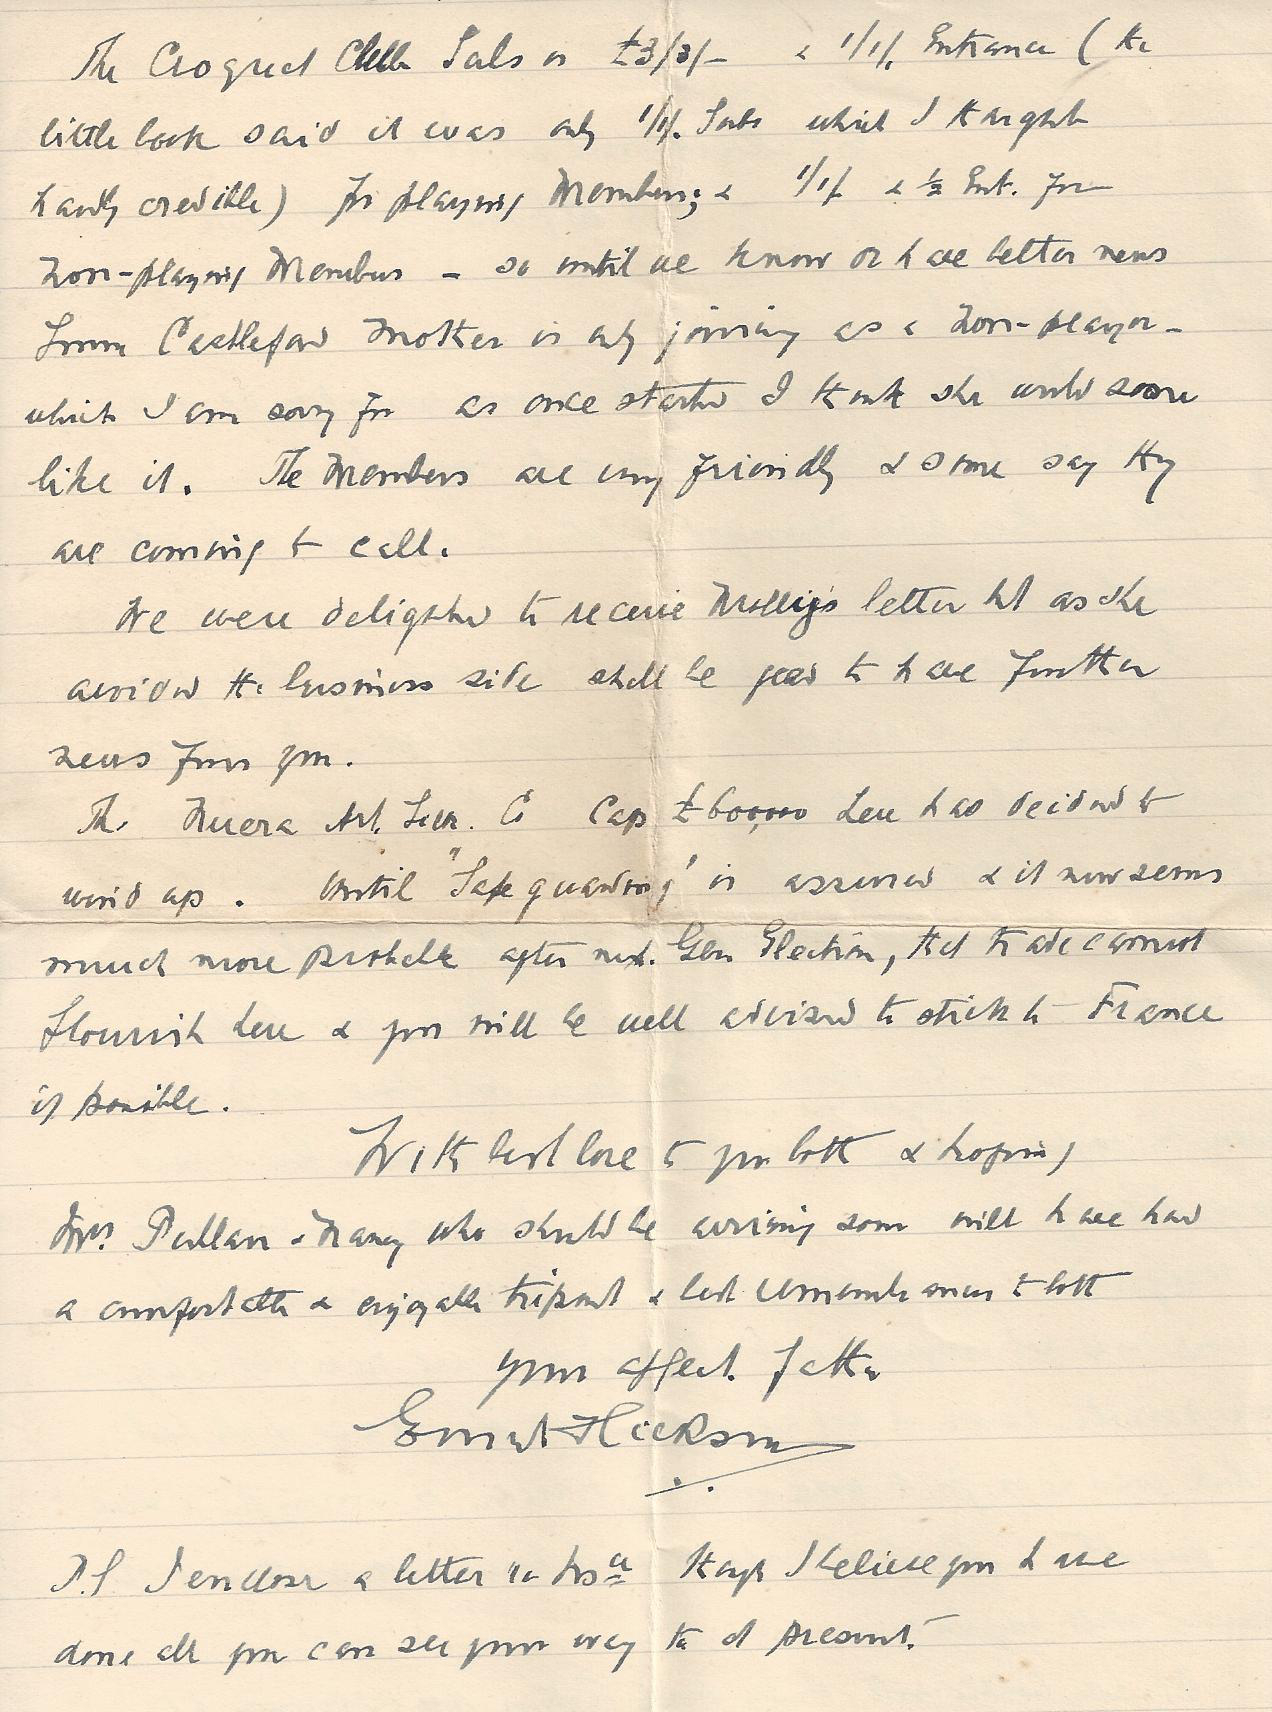 The Croquet Club Subs is £3/3/- & 1/1/. Entrance (the
little book said it was only 1/1/. Subs which I thought
hardly credible) for playing Members; & 1/1/. & ½ Ent. for
non-playing Members - so until we know or have better news
from Castleford Mother is only joining as a non-player -
which I am sorry for as once started I think she would soon
like it. The Members are very friendly & some say they
are coming to call.
We were delighted to receive Molly's letter but as she
avoided the business side shall be glad to have further
news from you.
The Nuera Art. Silk. Co Cap £600,000 here has decided to
wind up. Until "Safeguarding" is assured & it now seems
much more probable after next. Gen Election, that trade cannot
flourish here & you will be well advised to stick to France
if possible.
With best love to you both & hoping
Mrs. Pullan & Nancy who should be arriving soon will have had
a comfortable & enjoyable trip out & best remembrances to both
your affect. Father
Ernest Hickson
P.S I enclose a letter in though I believe you have
done all you can see your way to at present.